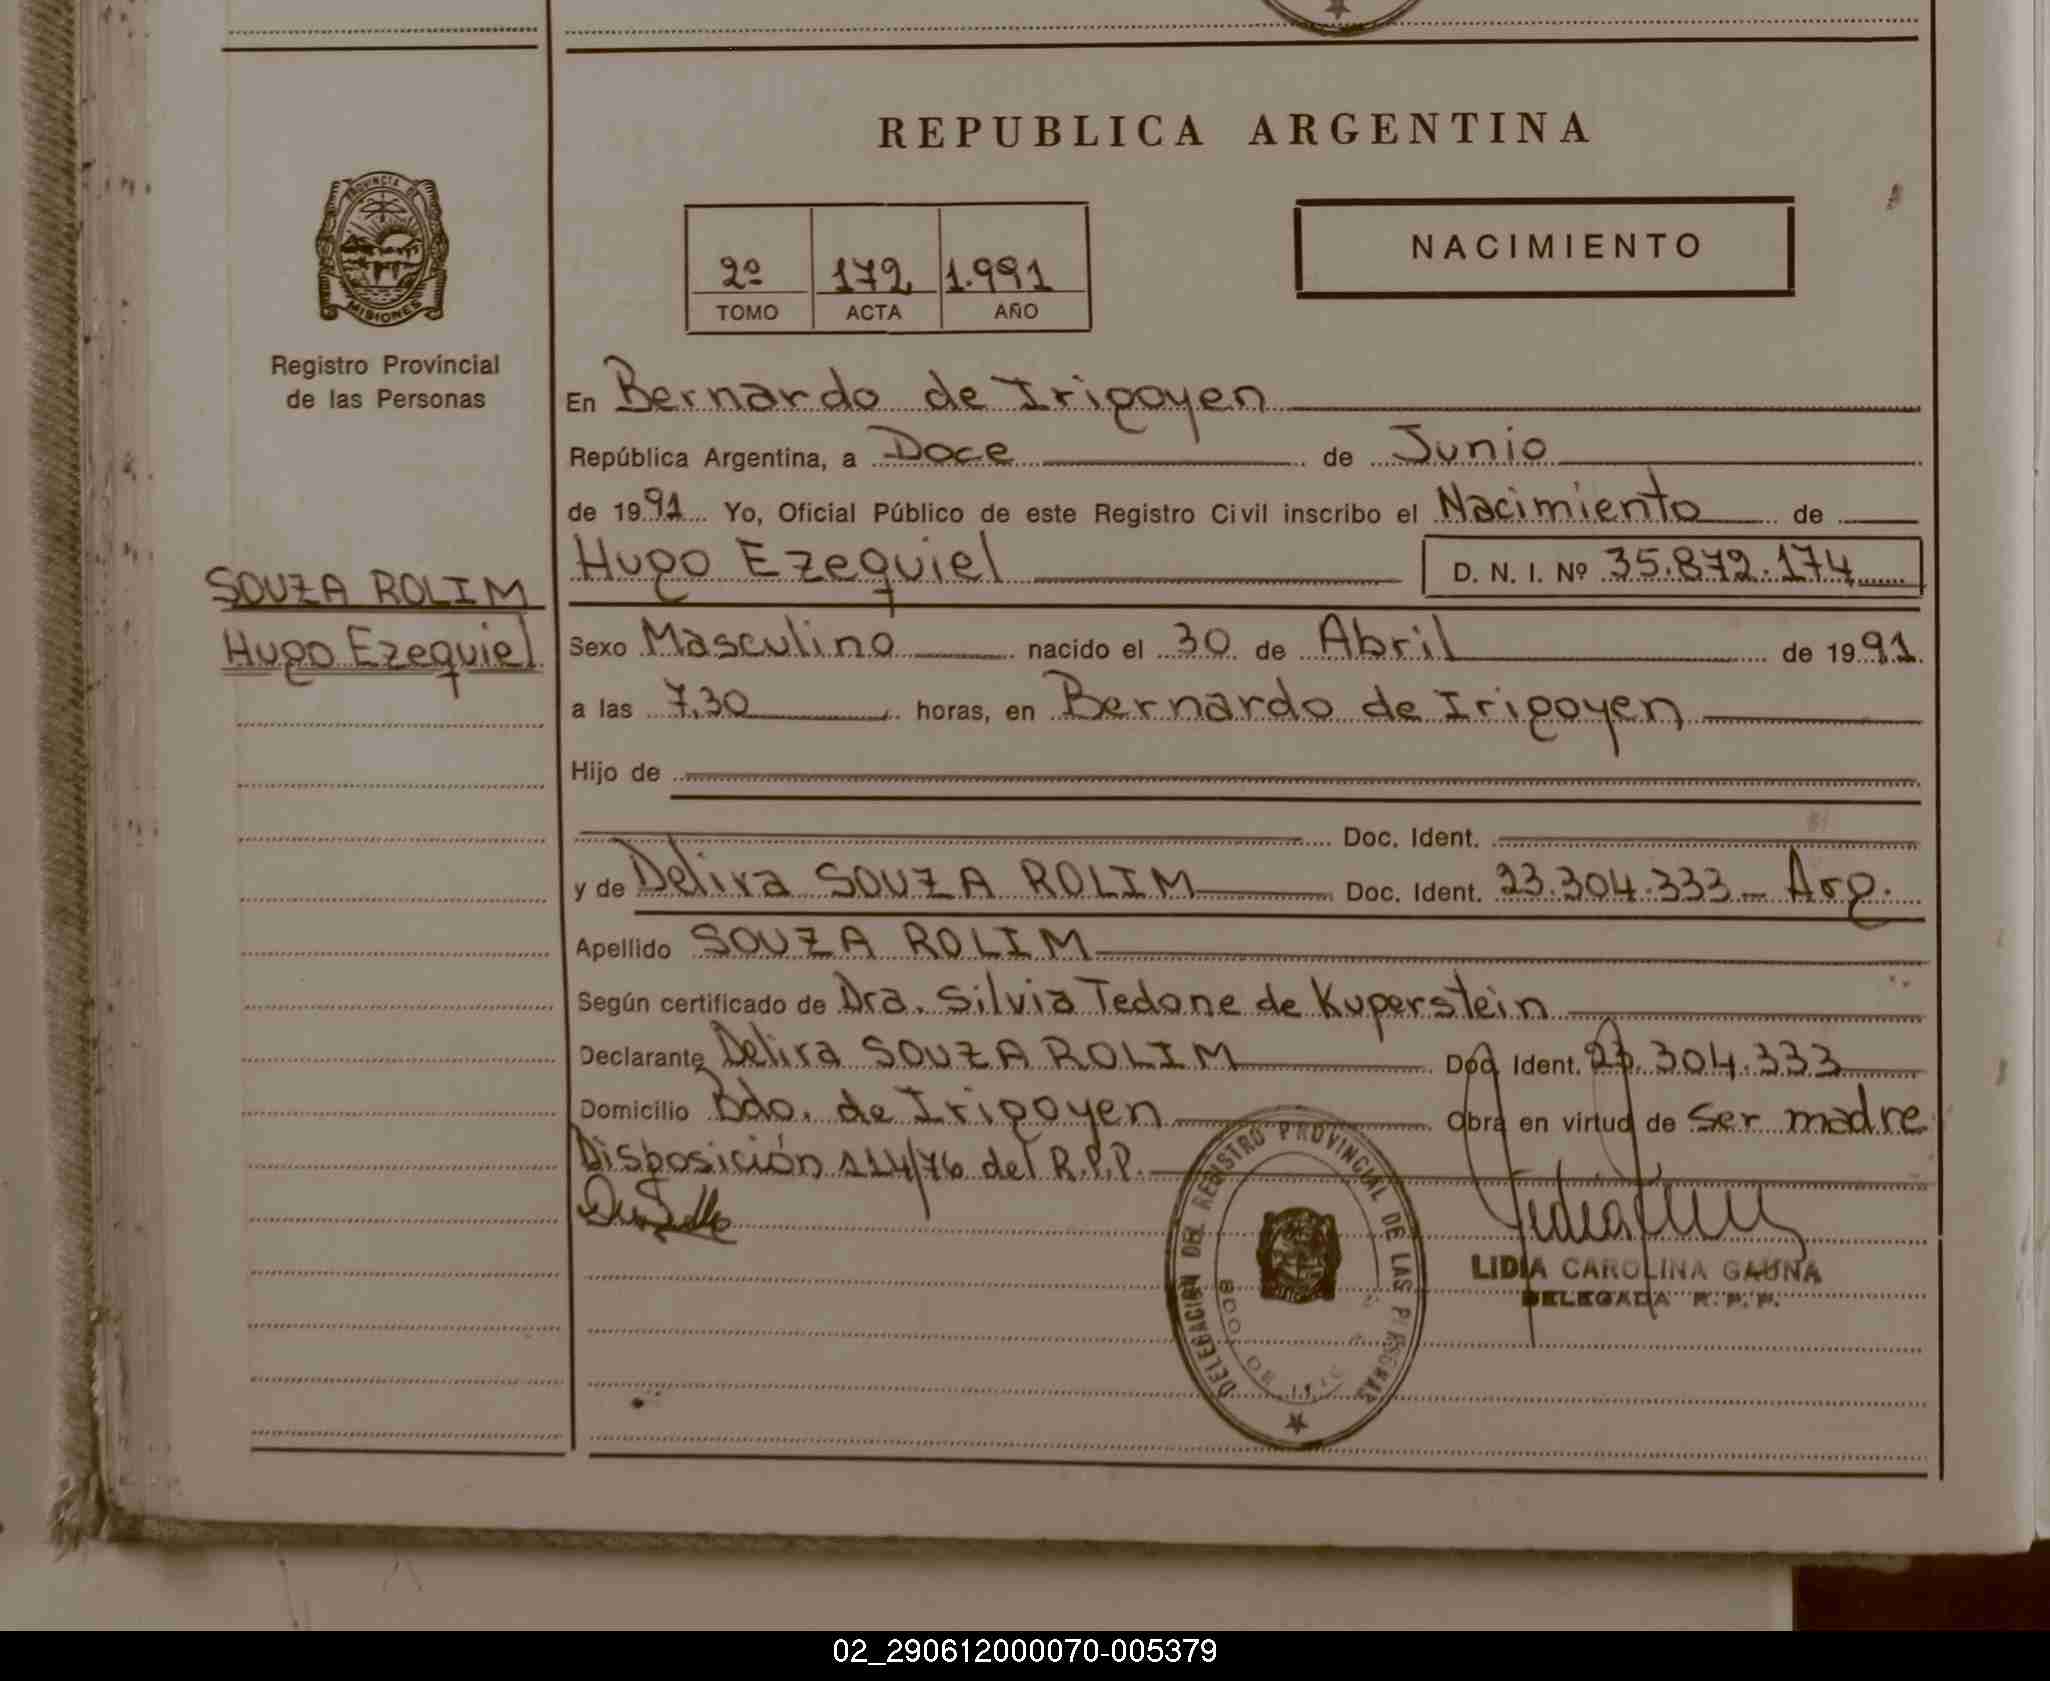 REPUBLICA ARGENTINA
PROVINCIA DE
MISIONES
Registro Provincial
de las Personas
2º 172 1.991
TOMO ACTA AÑO
NACIMIENTO
En Bernardo de Irigoyen
República Argentina, a Doce de Junio
de 1991 Yo, Oficial Público de este Registro Civil inscribo el Nacimiento de
Hugo Ezequiel D. N. I. Nº 35.872.174
SOUZA ROLIM
Hugo Ezequiel
Sexo Masculino nacido el 30 de Abril de 1991
a las 7,30 horas, en Bernardo de Irigoyen
Hijo de
Doc. Ident.
y de Delira SOUZA ROLIM Doc. Ident. 23.304.333 - Arg.
Apellido SOUZA ROLIM
Según certificado de Dra. Silvia Tedone de Kuperstein
Declarante Delira SOUZA ROLIM Doc. Ident. 23.304.333
Domicilio Bdo. de Irigoyen Obra en virtud de ser madre
Disposición 114/76 del R.P.P.
DELEGACION DEL REGISTRO PROVINCIAL DE LAS PERSONAS
LIDIA CAROLINA GAUNA
DELEGADA R. P. P.
02_290612000070-005379